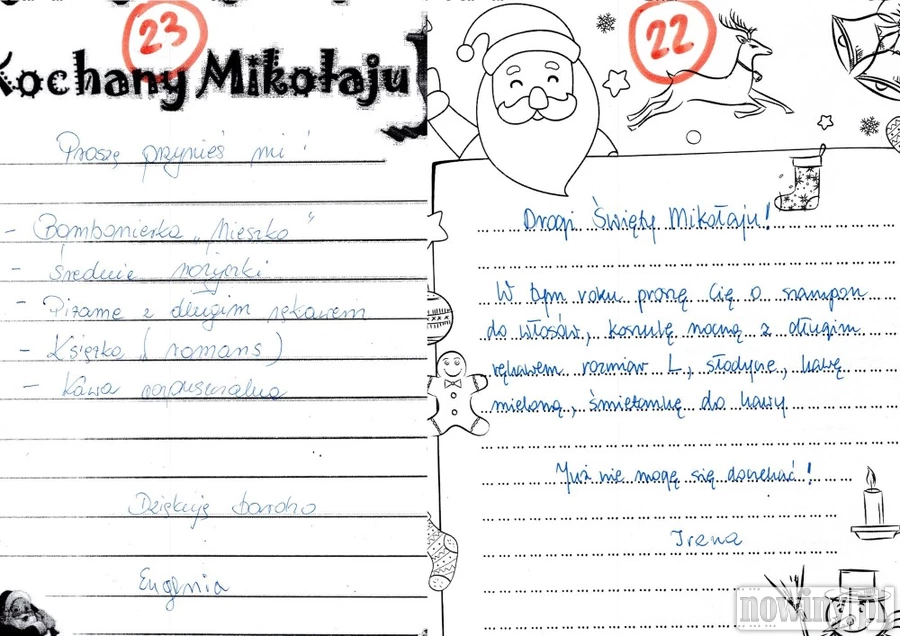 23
Kochany Mikołaju
Proszę przynieś mi!
- Bombonierka "Mieszko"
- Średnie nożyczki
- Piżamę z długim rękawem
- Książka (romans)
- Kawa rozpuszczalna
Dziękuję bardzo
Eugenia
22
Drogi Święty Mikołaju!
W tym roku proszę Cię o szampon
do włosów, koszulę nocną z długim
rękawem rozmiar L, słodycze, kawę
mieloną, śmietankę do kawy
Już nie mogę się doczekać!
Irena
nowiny.pl